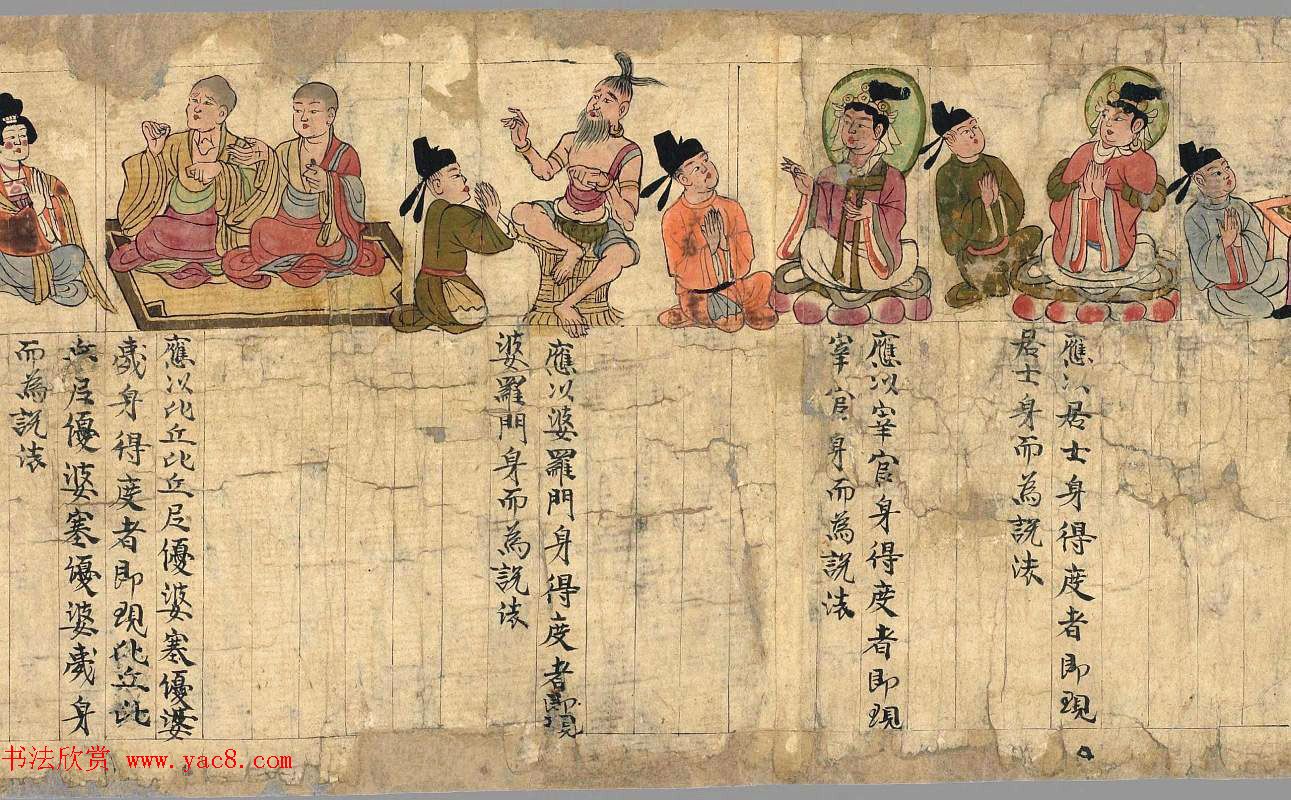 應以居士身得度者即現
居士身而為說法
應以宰官身得度者即現
宰官身而為說法
應以婆羅門身得度者即現
婆羅門身而為說法
應以比丘比丘尼優婆塞優婆
夷身得度者即現比丘比
丘尼優婆塞優婆夷身
而為說法
书法欣赏 www.yac8.com